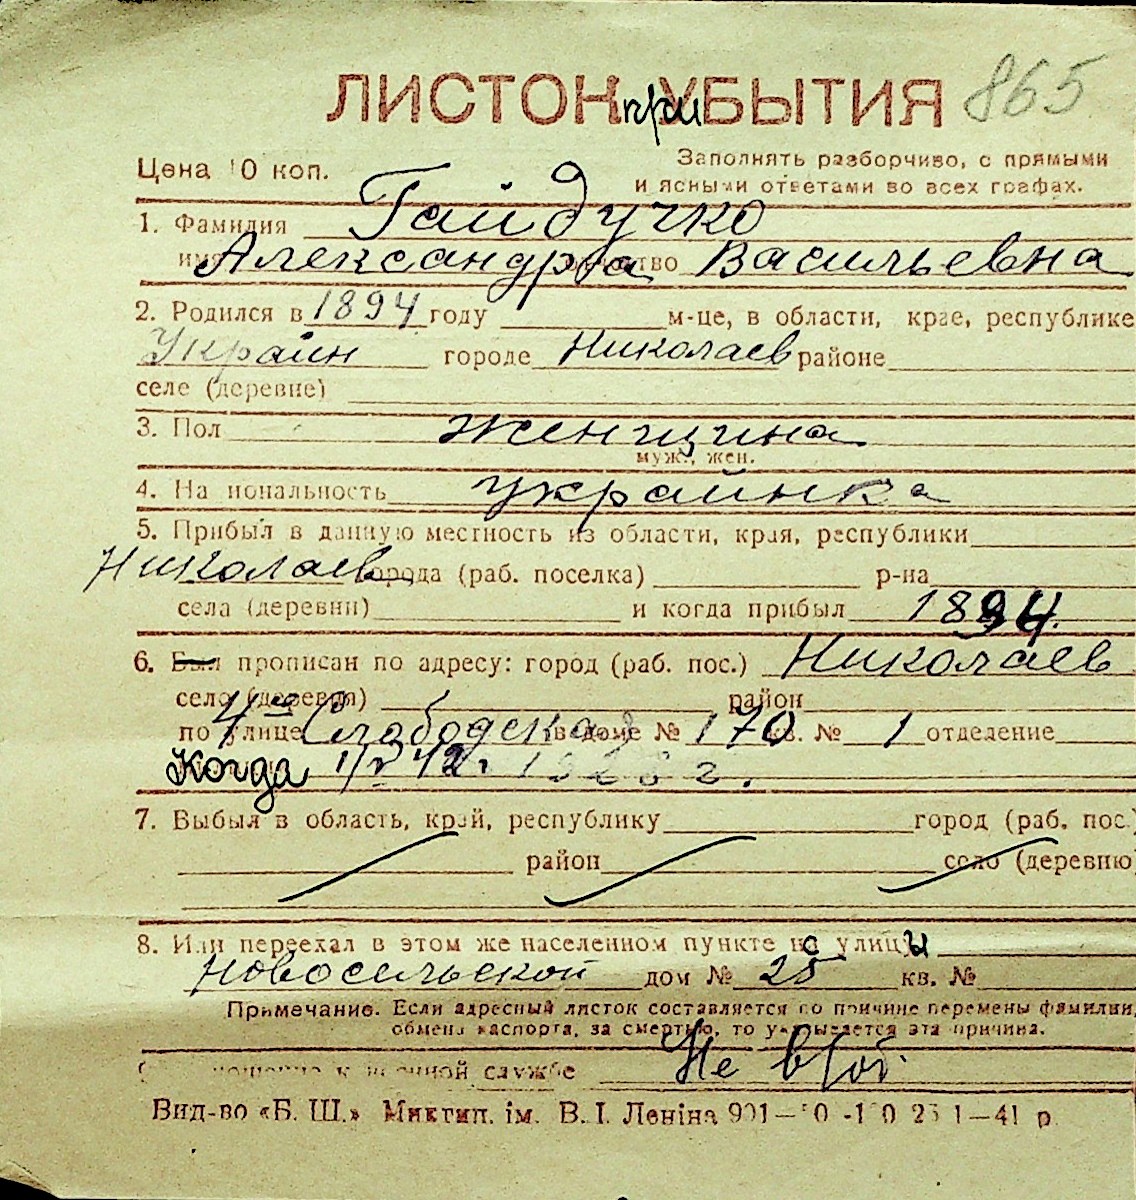 ЛИСТОК при УБЫТИЯ 865
Цена 10 коп. Заполнять разборчиво, с прямыми
и ясными ответами во всех графах.
1. Фамилия Гайдучко
имя Александра отчество Васильевна
2. Родился в 1894 году м-це, в области, крае, республике
Украин городе Николаев районе
селе (деревне)
3. Пол женщина
муж., жен.
4. Национальность украинка
5. Прибыл в данную местность из области, края, республики
Николаев города (раб. поселка) р-на
села (деревни) и когда прибыл 1894.
6. Был прописан по адресу: город (раб. пос.) Николаев
село (деревня) район
по улице 4ая Слободская в доме № 170 кв. № 1 отделение
Когда г.
7. Выбыл в область, край, республику город (раб. пос.)
район село (деревню)
8. Или переехал в этом же населенном пункте на улицы
Новосельской дом № 25 кв. №
Примечание. Если адресный листок составляется по причине перемены фамилии,
обмена паспорта, за смертью, то указывается эта причина.
к военной службе Не в/об.
Вид-во «Б. Ш.» Миктип. ім. В. І. Леніна 1—41 р.